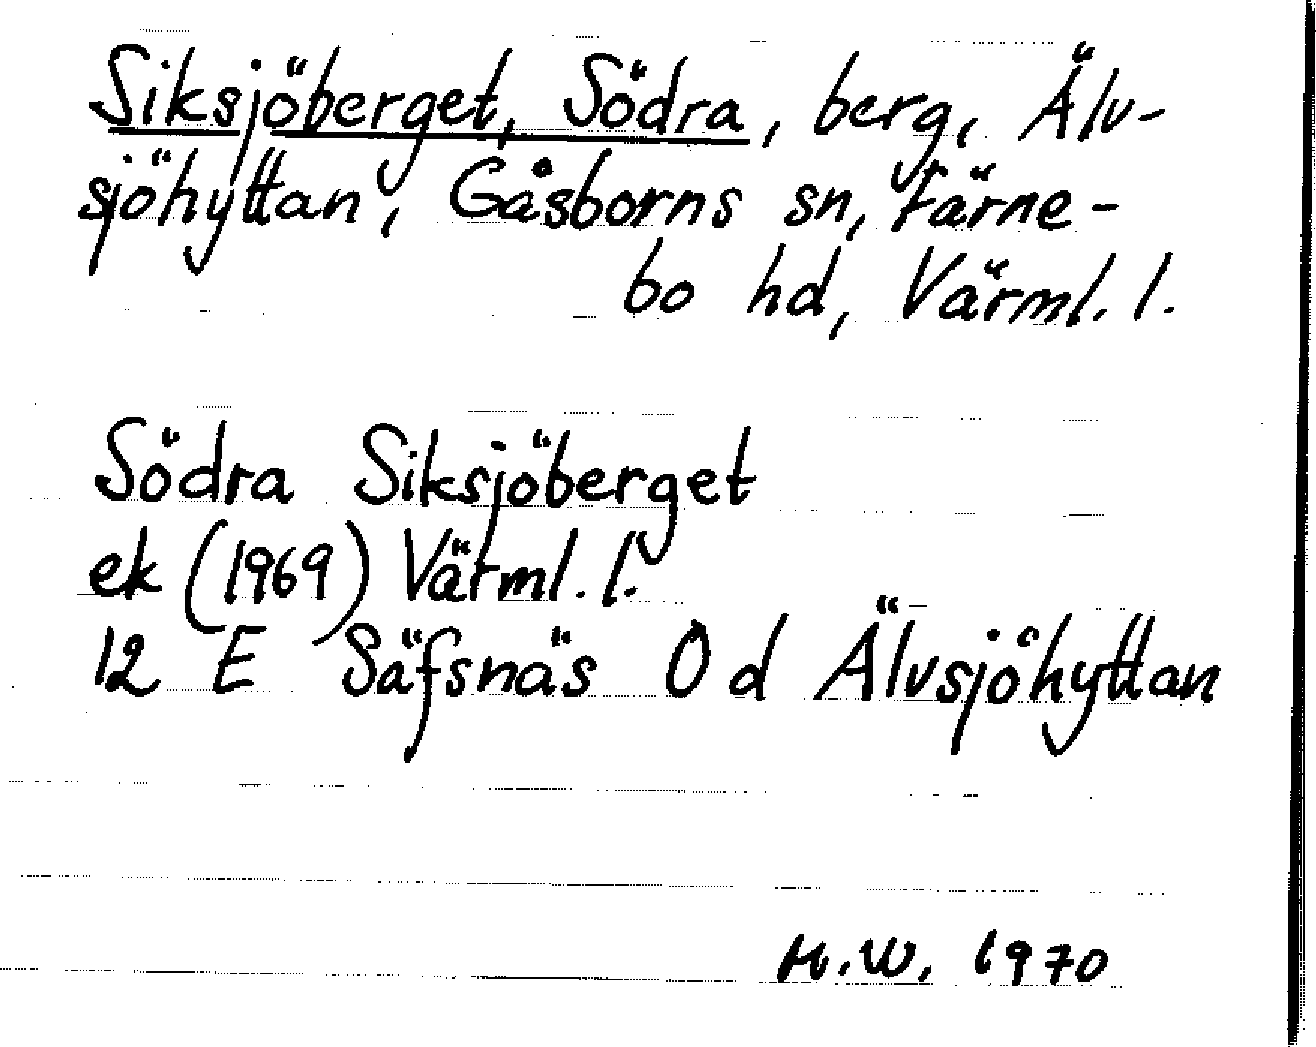 Siksjöberget, Södra, berg, Älv-
sjöhyttan, Gåsborns sn, Färne-
bo hd, Värml. l.
Södra Siksjöberget
ek (1969) Värml. l.
12 E Säfsnäs 0 d Älvsjöhyttan
M.W. 1970